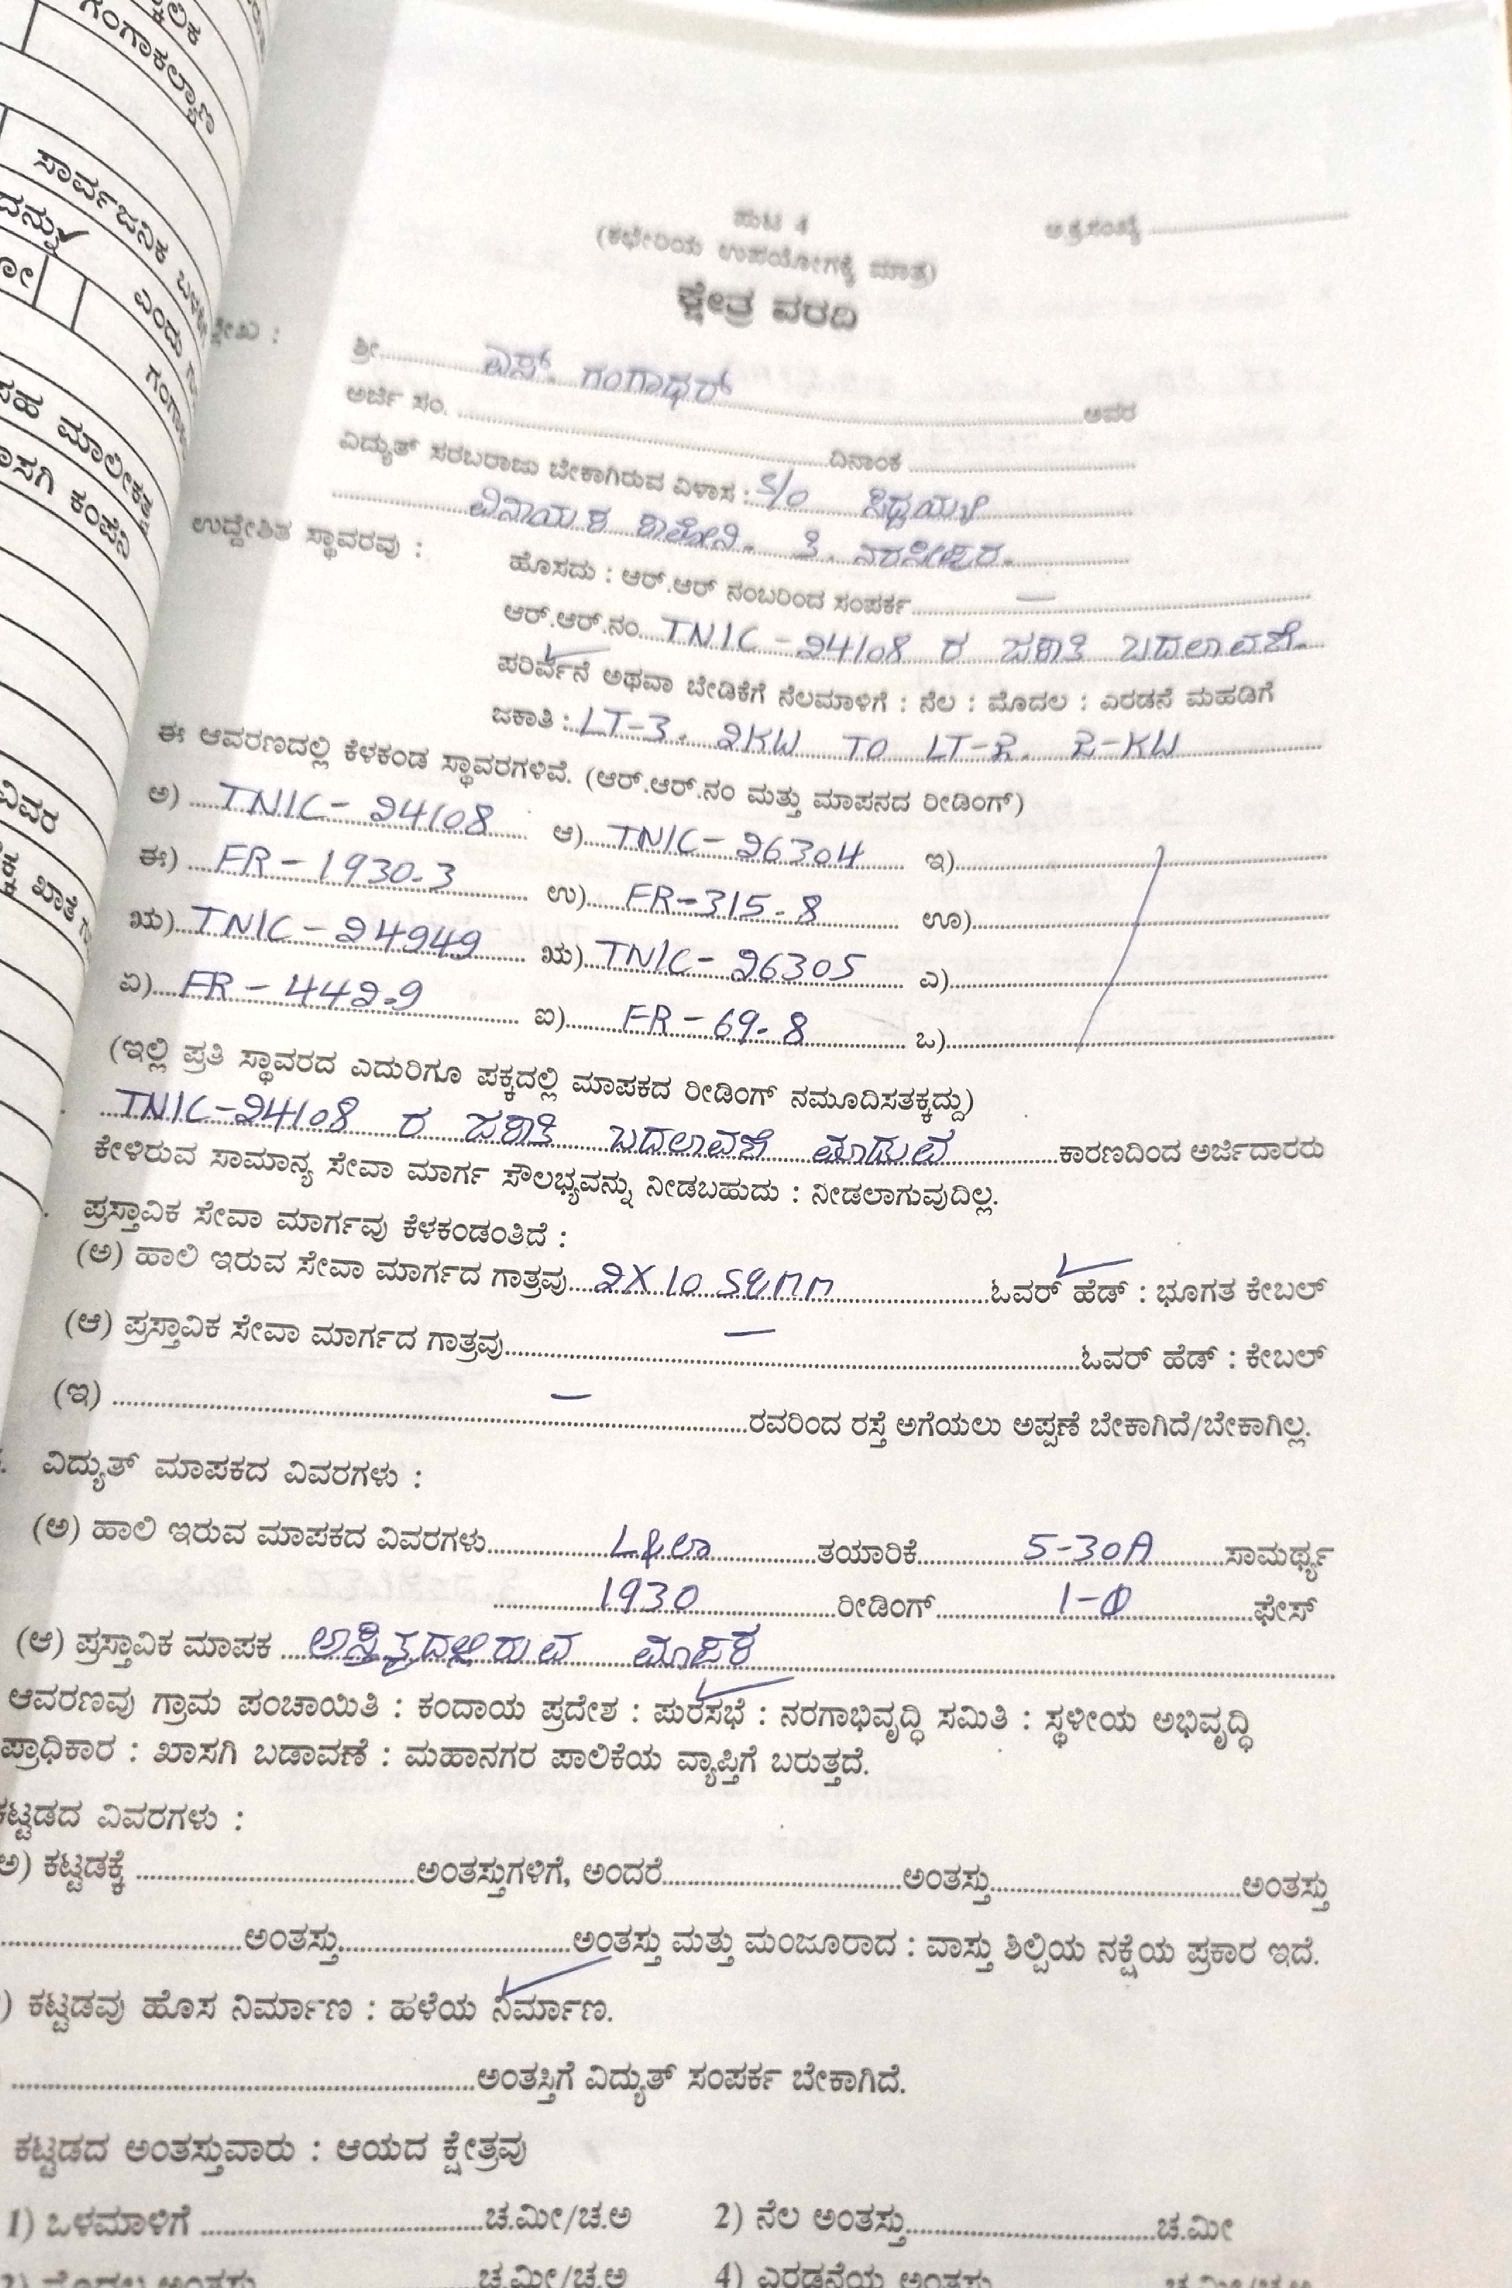 ಗಂಗಾಕಲ್ಯಾಣ
ಸಾರ್ವಜನಿಕ
ಎಂದು
ಸಹ ಮಾಲೀಕತ್ವ
ಖಾಸಗಿ ಕಂಪೆನಿ
ವಿವರ
ಖಾತೆ
ಪುಟ 4
ಅ.ಕ್ರ.ಸಂಖ್ಯೆ
(ಕಛೇರಿಯ ಉಪಯೋಗಕ್ಕೆ ಮಾತ್ರ)
ಕ್ಷೇತ್ರ ವರದಿ
ಶ್ರೀ. ಎಸ್. ಗಂಗಾಧರ್ ಅವರ
ಅರ್ಜಿ ಸಂ. ದಿನಾಂಕ
ವಿದ್ಯುತ್ ಸರಬರಾಜು ಬೇಕಾಗಿರುವ ವಿಳಾಸ : S/o
ವಿನಾಯಕ ಕಾಲೋನಿ. ತಿ. ನರಸೀಪುರ.
ಉದ್ದೇಶಿತ ಸ್ಥಾವರವು :
ಹೊಸದು : ಆರ್.ಆರ್ ನಂಬರಿಂದ ಸಂಪರ್ಕ —
ಆರ್.ಆರ್.ನಂ. TN1C-24108 ರ ಜಕಾತಿ ಬದಲಾವಣೆ.
ಪರಿರ್ವೆನೆ ಅಥವಾ ಬೇಡಿಕೆಗೆ ನೆಲಮಾಳಿಗೆ : ನೆಲ : ಮೊದಲ : ಎರಡನೆ ಮಹಡಿಗೆ
ಜಕಾತಿ : LT-3. 2KW TO LT-2. 2-KW
ಈ ಆವರಣದಲ್ಲಿ ಕೆಳಕಂಡ ಸ್ಥಾವರಗಳಿವೆ. (ಆರ್.ಆರ್.ನಂ ಮತ್ತು ಮಾಪನದ ರೀಡಿಂಗ್)
ಅ) TN1C-24108 ಆ) TN1C-26304 ಇ)
ಈ) FR-1930-3 ಉ) FR-315-8 ಊ)
ಋ) TN1C-24949 ಋ) TN1C-26305 ಎ)
ಏ) FR-442-9 ಐ) FR-69-8 ಒ)
(ಇಲ್ಲಿ ಪ್ರತಿ ಸ್ಥಾವರದ ಎದುರಿಗೂ ಪಕ್ಕದಲ್ಲಿ ಮಾಪಕದ ರೀಡಿಂಗ್ ನಮೂದಿಸತಕ್ಕದ್ದು)
TN1C-24108 ರ ಜಕಾತಿ ಬದಲಾವಣೆ ಮಾಡುವ ಕಾರಣದಿಂದ ಅರ್ಜಿದಾರರು
ಕೇಳಿರುವ ಸಾಮಾನ್ಯ ಸೇವಾ ಮಾರ್ಗ ಸೌಲಭ್ಯವನ್ನು ನೀಡಬಹುದು : ನೀಡಲಾಗುವುದಿಲ್ಲ.
ಪ್ರಸ್ತಾವಿಕ ಸೇವಾ ಮಾರ್ಗವು ಕೆಳಕಂಡಂತಿದೆ :
(ಅ) ಹಾಲಿ ಇರುವ ಸೇವಾ ಮಾರ್ಗದ ಗಾತ್ರವು 2X10 ಓವರ್ ಹೆಡ್ : ಭೂಗತ ಕೇಬಲ್
(ಆ) ಪ್ರಸ್ತಾವಿಕ ಸೇವಾ ಮಾರ್ಗದ ಗಾತ್ರವು — ಓವರ್ ಹೆಡ್ : ಕೇಬಲ್
(ಇ) — ರವರಿಂದ ರಸ್ತೆ ಅಗೆಯಲು ಅಪ್ಪಣೆ ಬೇಕಾಗಿದೆ/ಬೇಕಾಗಿಲ್ಲ.
ವಿದ್ಯುತ್ ಮಾಪಕದ ವಿವರಗಳು :
(ಅ) ಹಾಲಿ ಇರುವ ಮಾಪಕದ ವಿವರಗಳು ತಯಾರಿಕೆ 5-30A ಸಾಮರ್ಥ್ಯ
1930 ರೀಡಿಂಗ್ 1-Φ ಫೇಸ್
(ಆ) ಪ್ರಸ್ತಾವಿಕ ಮಾಪಕ ಅಸ್ತಿತ್ವದಲ್ಲಿರುವ ಮಾಪಕ
ಆವರಣವು ಗ್ರಾಮ ಪಂಚಾಯಿತಿ : ಕಂದಾಯ ಪ್ರದೇಶ : ಪುರಸಭೆ : ನರಗಾಭಿವೃದ್ಧಿ ಸಮಿತಿ : ಸ್ಥಳೀಯ ಅಭಿವೃದ್ಧಿ
ಪ್ರಾಧಿಕಾರ : ಖಾಸಗಿ ಬಡಾವಣೆ : ಮಹಾನಗರ ಪಾಲಿಕೆಯ ವ್ಯಾಪ್ತಿಗೆ ಬರುತ್ತದೆ.
ಕಟ್ಟಡದ ವಿವರಗಳು :
ಅ) ಕಟ್ಟಡಕ್ಕೆ ಅಂತಸ್ತುಗಳಿಗೆ, ಅಂದರೆ ಅಂತಸ್ತು ಅಂತಸ್ತು
ಅಂತಸ್ತು ಅಂತಸ್ತು ಮತ್ತು ಮಂಜೂರಾದ : ವಾಸ್ತು ಶಿಲ್ಪಿಯ ನಕ್ಷೆಯ ಪ್ರಕಾರ ಇದೆ.
) ಕಟ್ಟಡವು ಹೊಸ ನಿರ್ಮಾಣ : ಹಳೆಯ ನಿರ್ಮಾಣ.
ಅಂತಸ್ತಿಗೆ ವಿದ್ಯುತ್ ಸಂಪರ್ಕ ಬೇಕಾಗಿದೆ.
ಕಟ್ಟಡದ ಅಂತಸ್ತುವಾರು : ಆಯದ ಕ್ಷೇತ್ರವು
1) ಒಳಮಾಳಿಗೆ ಚ.ಮೀ/ಚ.ಅ 2) ನೆಲ ಅಂತಸ್ತು ಚ.ಮೀ
ಮೊದಲ ಅಂತಸ್ತು ಚ.ಮೀ/ಚ.ಅ 4) ಎರಡನೆಯ ಅಂತಸ್ತು ಚ.ಮೀ/ಚ.ಅ